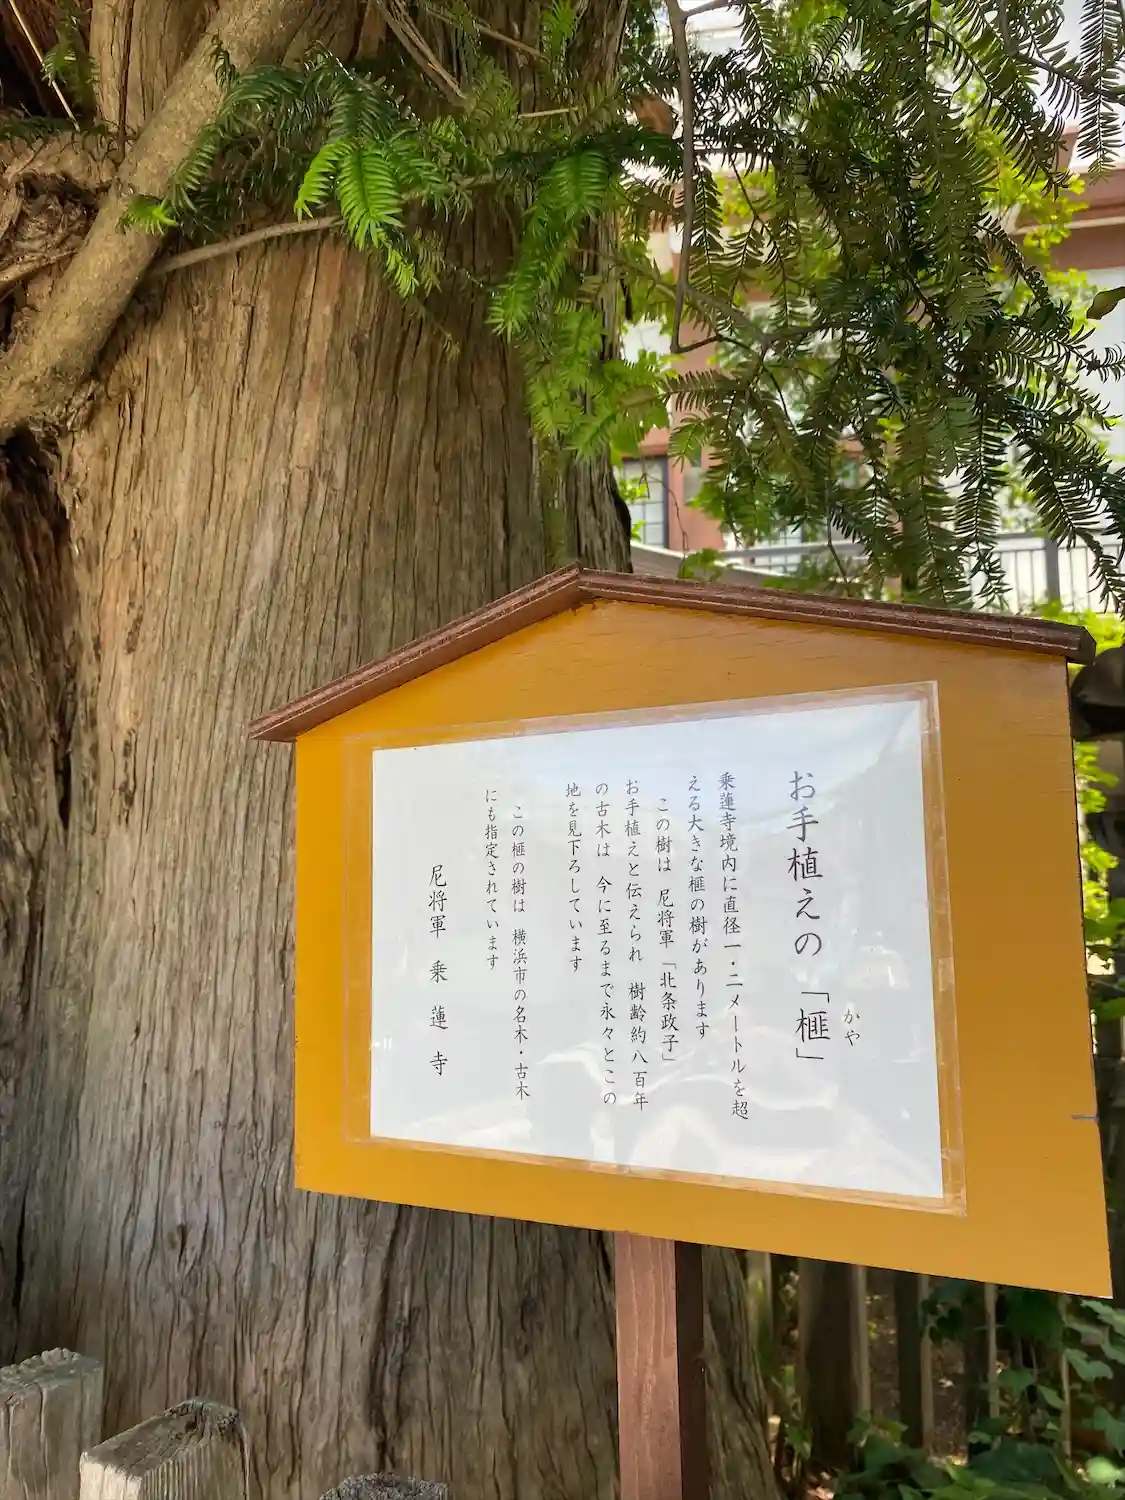 お手植えの「榧」
かや
乗蓮寺境内に直径一・二メートルを超
える大きな榧の樹があります
この樹は 尼将軍「北条政子」
お手植えと伝えられ 樹齢約八百年
の古木は 今に至るまで永々とこの
地を見下ろしています
この榧の樹は 横浜市の名木・古木
にも指定されています
尼将軍 乗 蓮 寺